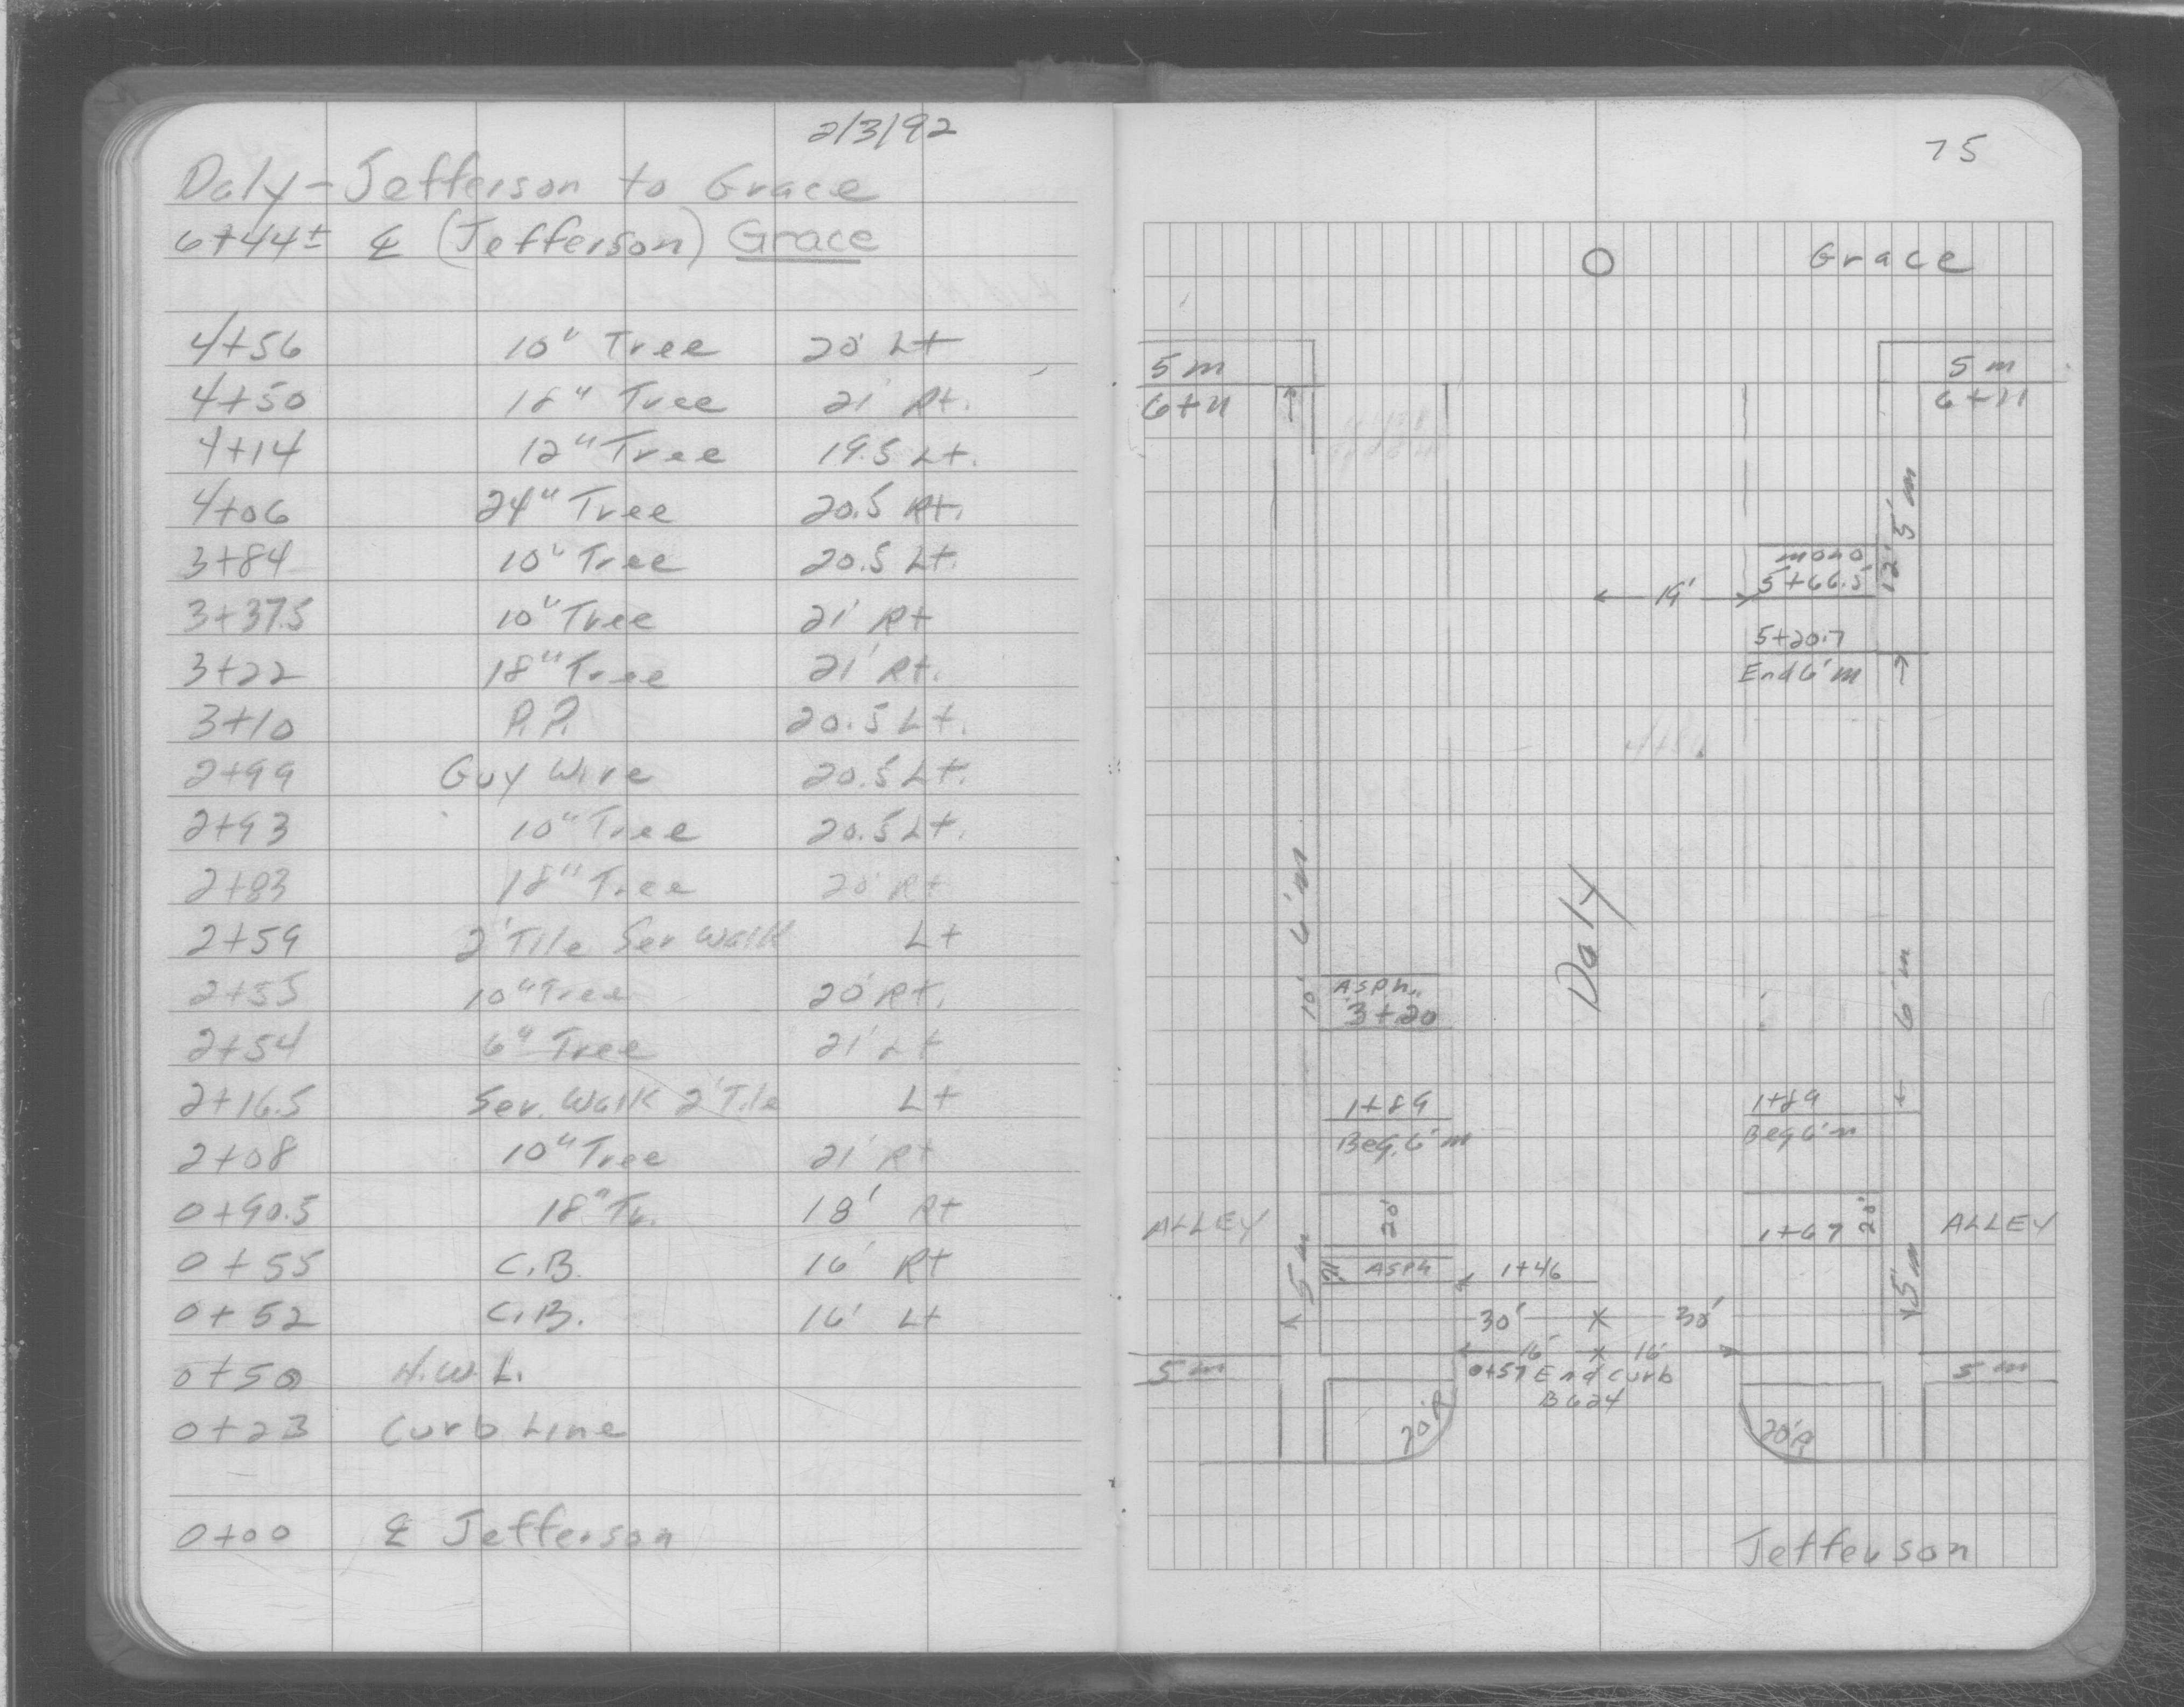 2/3/92
Daly - Jefferson to Grace
6+44± ℄ (Jefferson) Grace
4+56 10" Tree 20' Lt
4+50 18" Tree 21' Rt.
4+14 12" Tree 19.5 Lt.
4+06 24" Tree 20.5 Rt.
3+84 10" Tree 20.5 Lt.
3+37.5 10" Tree 21' Rt
3+22 18" Tree 21' Rt.
3+10 P.P. 20.5 Lt.
2+99 Guy Wire 20.5 Lt.
2+93 10" Tree 20.5 Lt.
2+83 18" Tree 20' Rt
2+59 2' Tile Ser Walk Lt
2+55 10" Tree 20' Rt.
2+54 6" Tree 21' Lt
2+16.5 Ser. Walk 2' Tile Lt
2+08 10" Tree 21' Rt
0+90.5 18" Tr. 18' Rt
0+55 C.B. 16' Rt
0+52 C.B. 16' Lt
0+50 N.W.L.
0+23 Curb Line
0+00 ℄ Jefferson
75
Grace
5 m
6+11
5 m
6+11
12.5' m
mono
5+66.5
19'
5+20.7
End 6' m
Daly
10' 6' m
6' m
Asph.
3+20
1+89
Beg. 6' m
1+89
Beg 6' m
ALLEY
20'
1+67
20'
ALLEY
5' m
ASPH
1+46
5' m
30' 30'
16' 16'
5 m
0+57 End Curb
B624
5 m
20'R
20'R
Jefferson